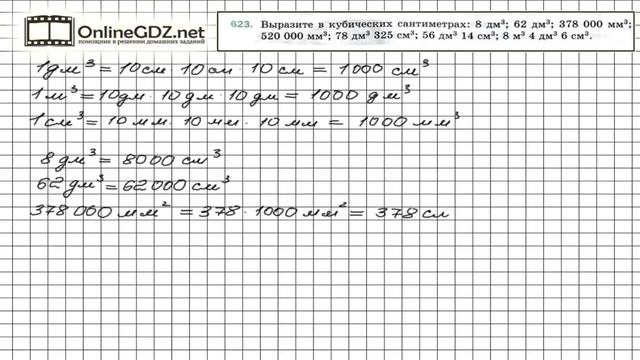 OnlineGDZ.net
помощник в решении домашних заданий
623. Выразите в кубических сантиметрах: 8 дм³; 62 дм³; 378 000 мм³;
520 000 мм³; 78 дм³ 325 см³; 56 дм³ 14 см³; 8 м³ 4 дм³ 6 см³.
1 дм³ = 10 см · 10 см · 10 см = 1000 см³
1 м³ = 10 дм · 10 дм · 10 дм = 1000 дм³
1 см³ = 10 мм · 10 мм · 10 мм = 1000 мм³
8 дм³ = 8000 см³
62 дм³ = 62 000 см³
378 000 мм² = 378 · 1000 мм² = 378 см